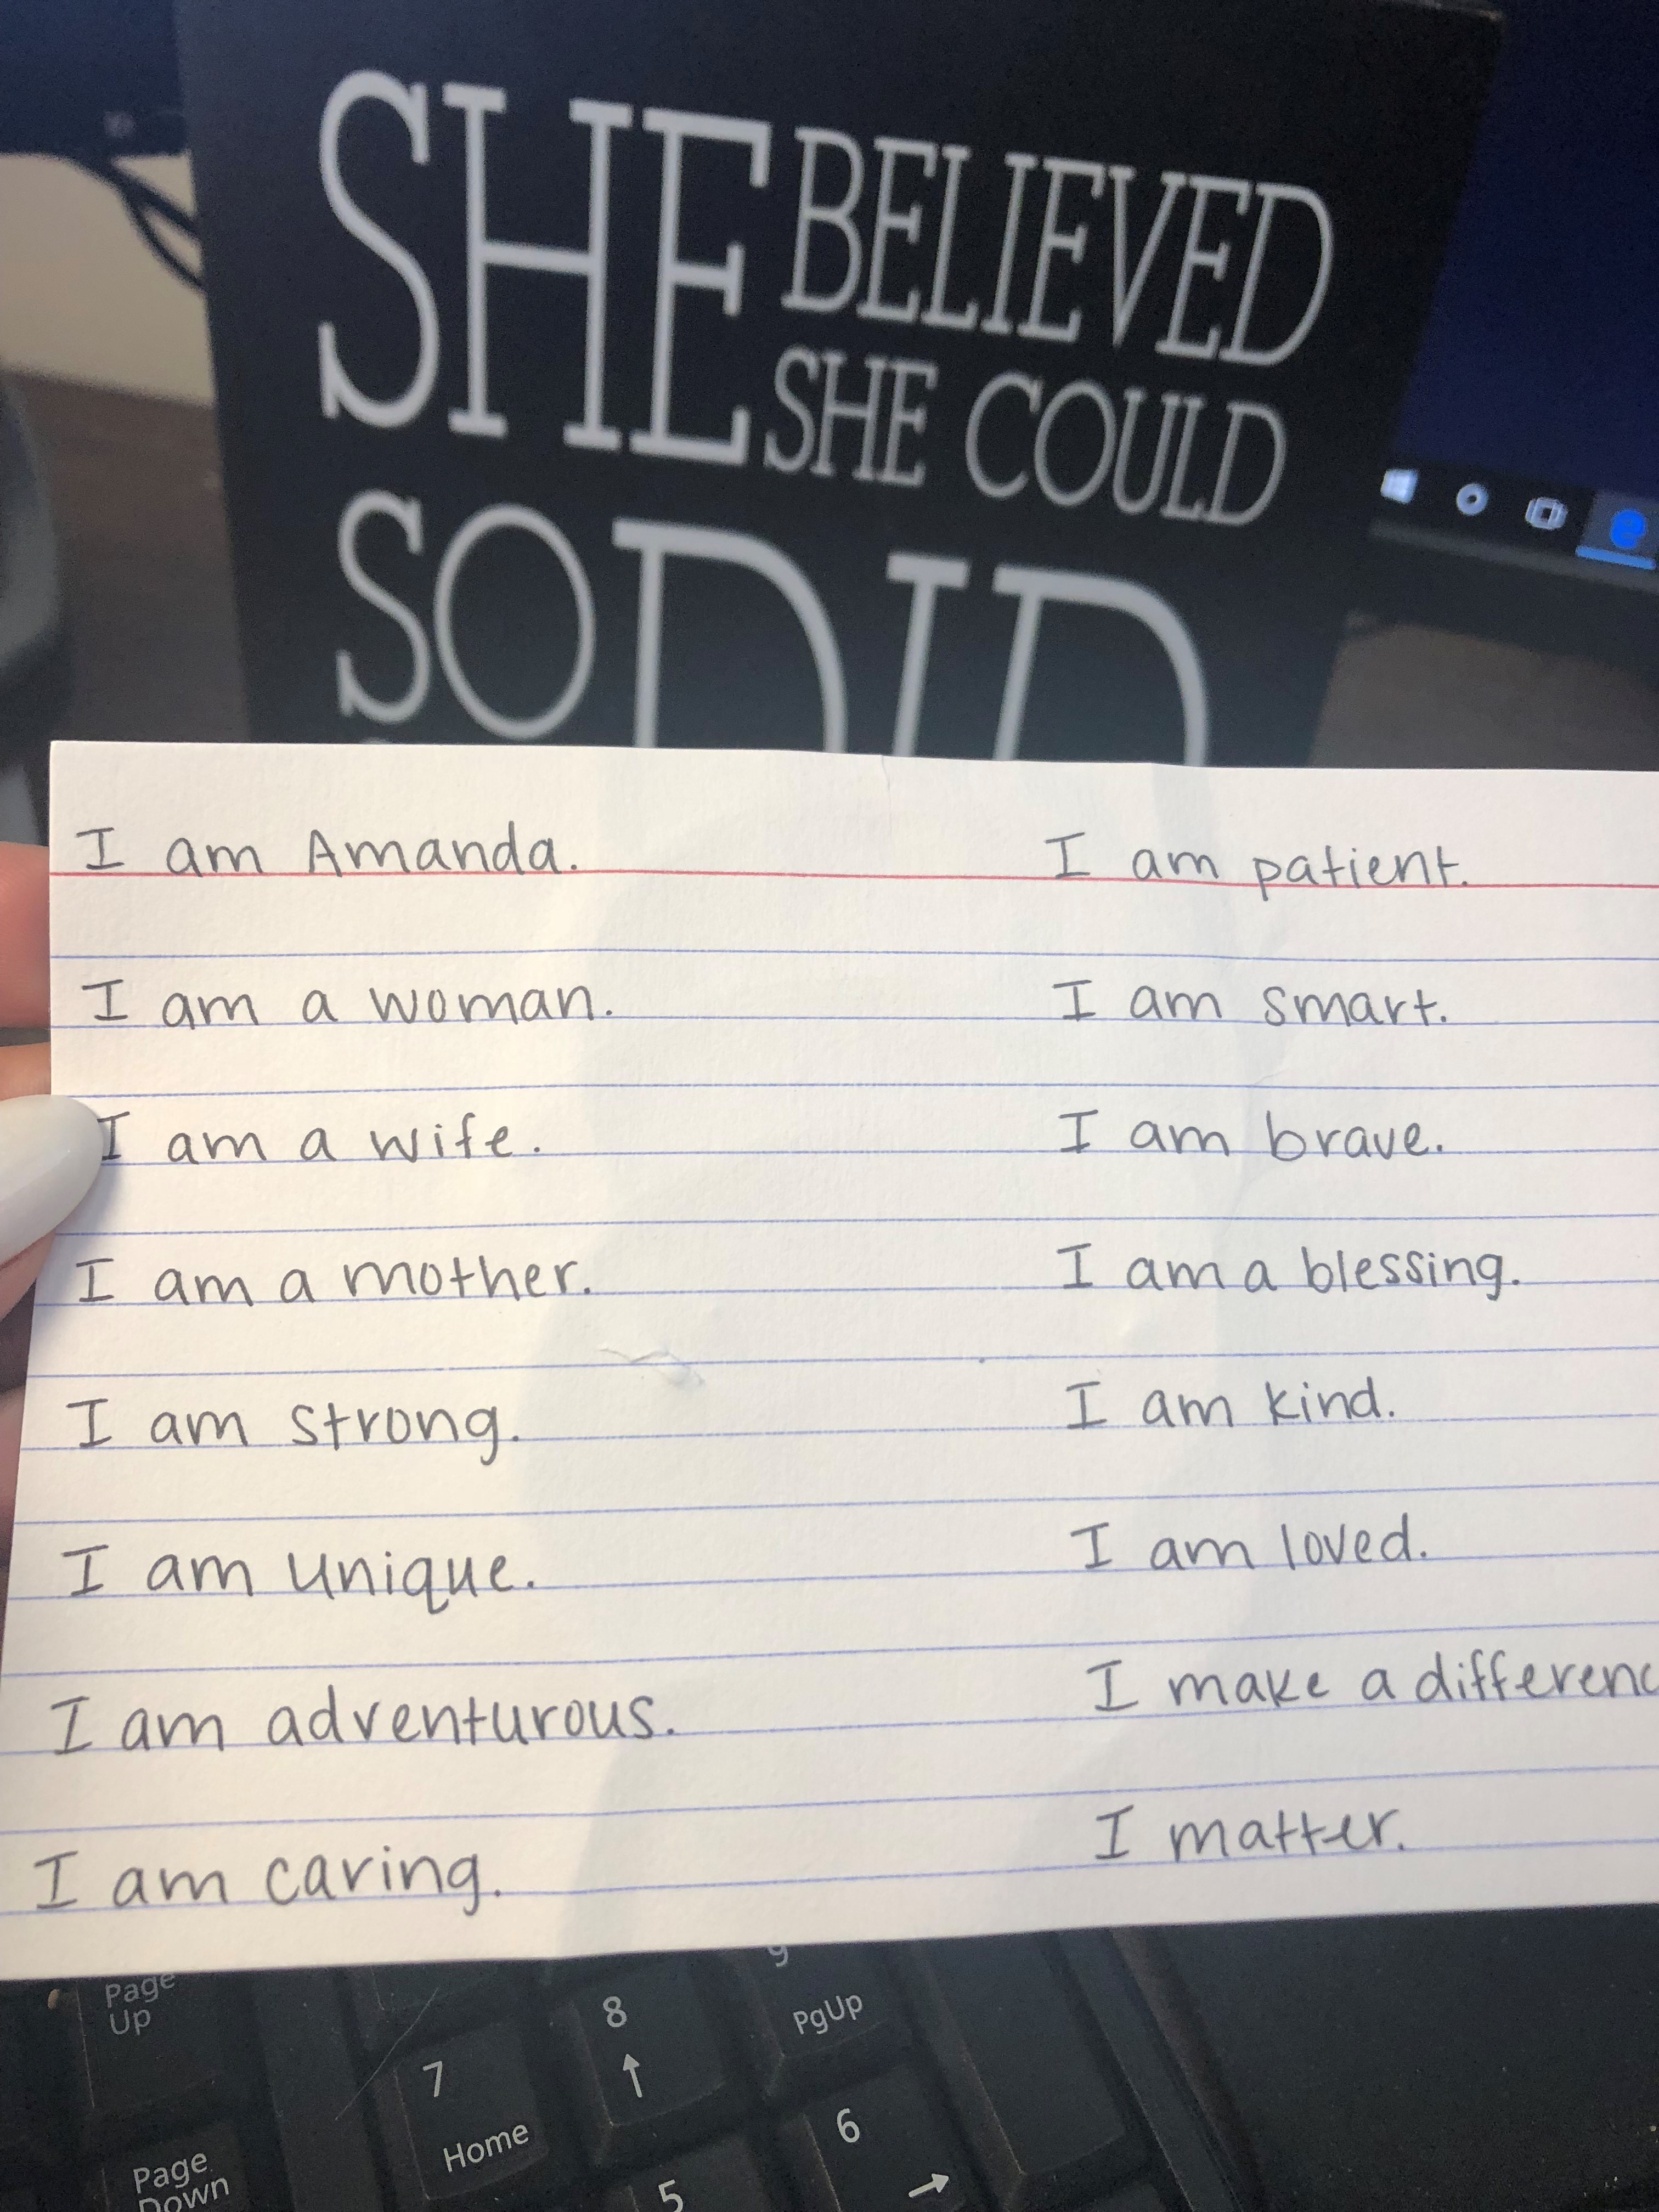 SHE BELIEVED
SHE COULD
SO DID
I am Amanda.
I am a woman.
I am a wife.
I am a mother.
I am strong.
I am unique.
I am adventurous.
I am caring.
I am patient.
I am smart.
I am brave.
I am a blessing.
I am kind.
I am loved.
I make a differenc
I matter.
Page
Up
7
Home
8
↑
9
PgUp
Page
Down
5
6
→